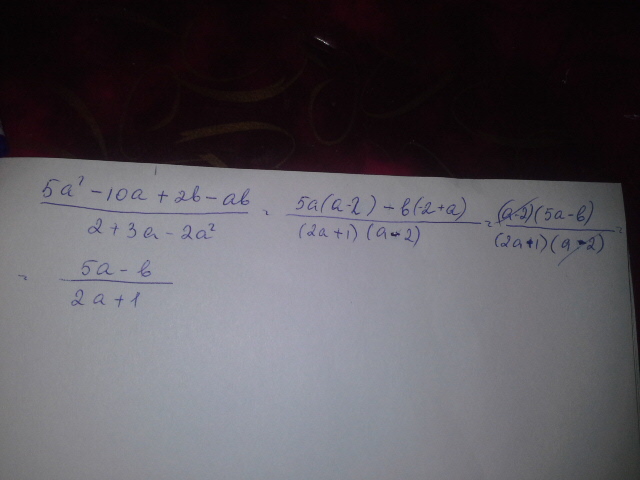 (5a² - 10a + 2b - ab)/(2 + 3a - 2a²) = (5a(a-2) - b(-2+a))/((2a+1)(a-2)) = ((a-2)(5a-b))/((2a+1)(a-2)) =
= (5a - b)/(2a + 1)